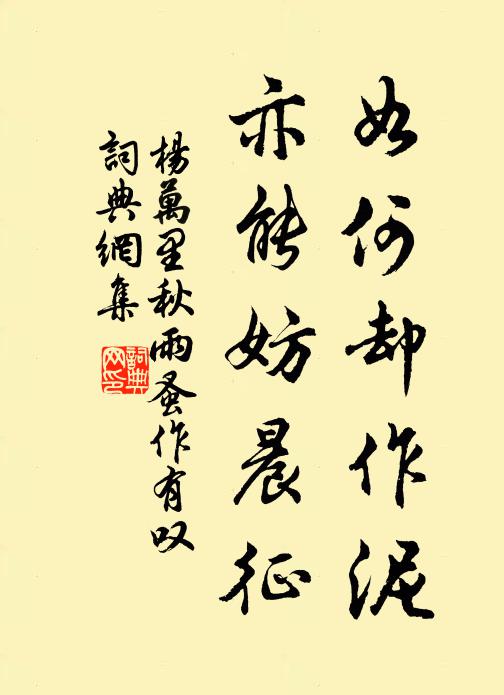 如何却作泥
亦能妨晨征
楊萬里秋雨蚤作有叹
詞典網集
詞典网印